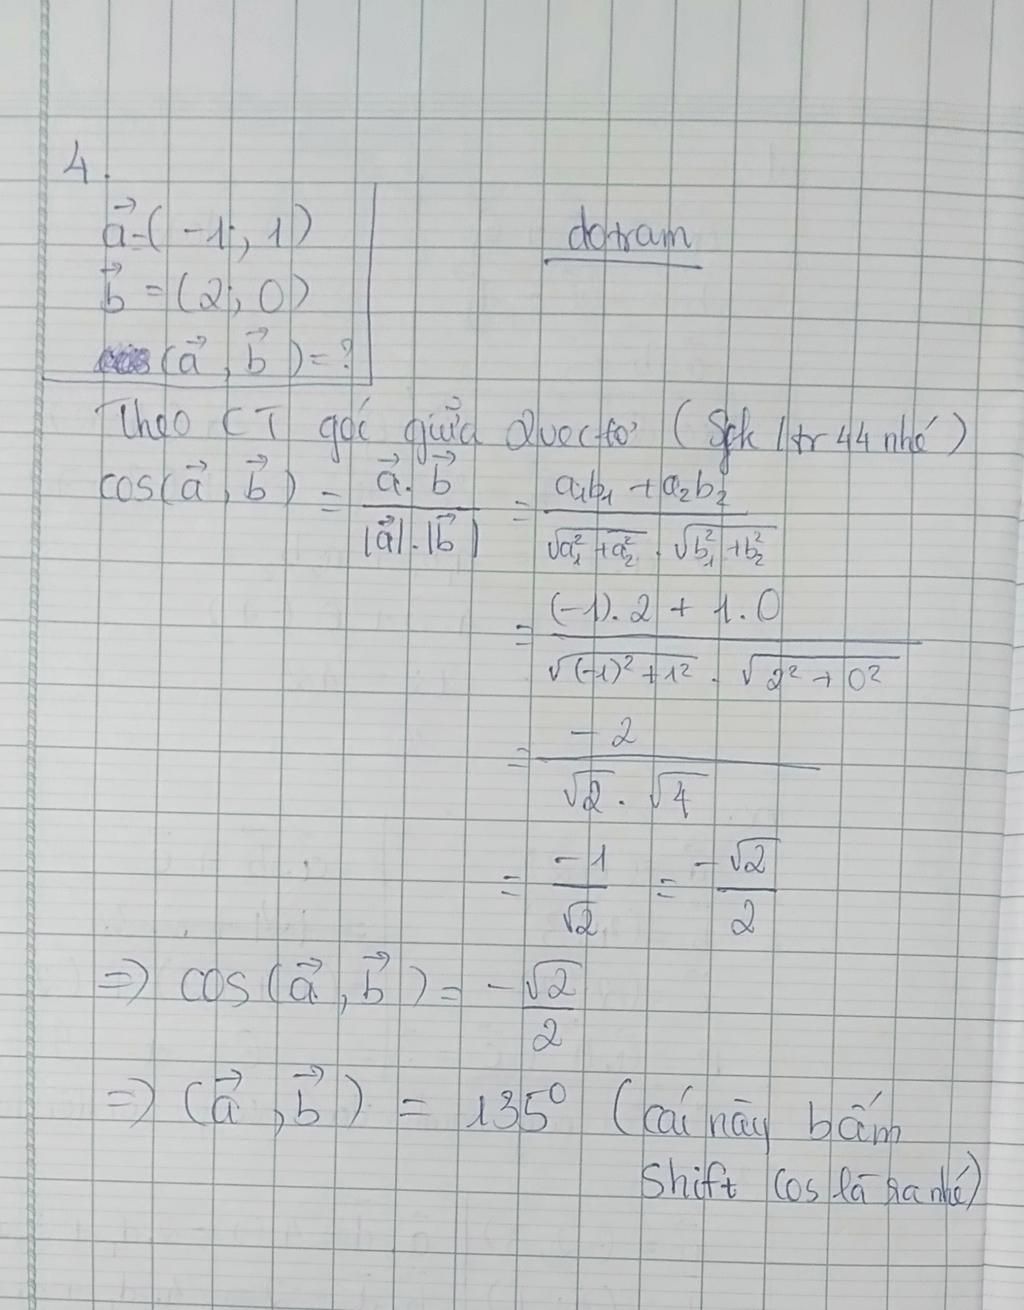 4.
a⃗ = (-1; 1)
dotram
b⃗ = (2; 0)
(a⃗, b⃗) = ?
Theo CT góc giữa 2 vectơ (Sgk 1 tr 44 nhé)
cos(a⃗, b⃗) = a⃗.b⃗ / |a⃗|.|b⃗| = a₁b₁ + a₂b₂ / √(a₁² + a₂²) . √(b₁² + b₂²)
= (-1).2 + 1.0 / √((-1)² + 1²) . √(2² + 0²)
= -2 / √2 . √4
= -1 / √2 = -√2 / 2
⇒ cos(a⃗, b⃗) = -√2 / 2
⇒ (a⃗, b⃗) = 135⁰ (cái này bấm
Shift cos là ra nhé)